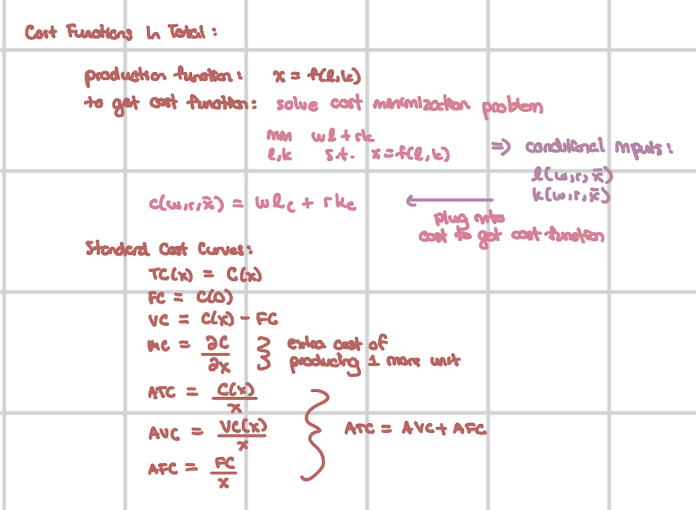 Cost Functions In Total:
production function: x = f(l,k)
to get cost function: solve cost minimization problem
min wl + rk
l,k s.t. x = f(l,k)
=> conditional inputs:
l(w,r,x̄)
k(w,r,x̄)
c(w,r,x̄) = wlc + rkc
plug into
cost to get cost function
Standard Cost Curves:
TC(x) = C(x)
FC = C(0)
VC = C(x) - FC
MC = ∂C/∂x } extra cost of
producing 1 more unit
ATC = C(x)/x
AVC = VC(x)/x
ATC = AVC + AFC
AFC = FC/x